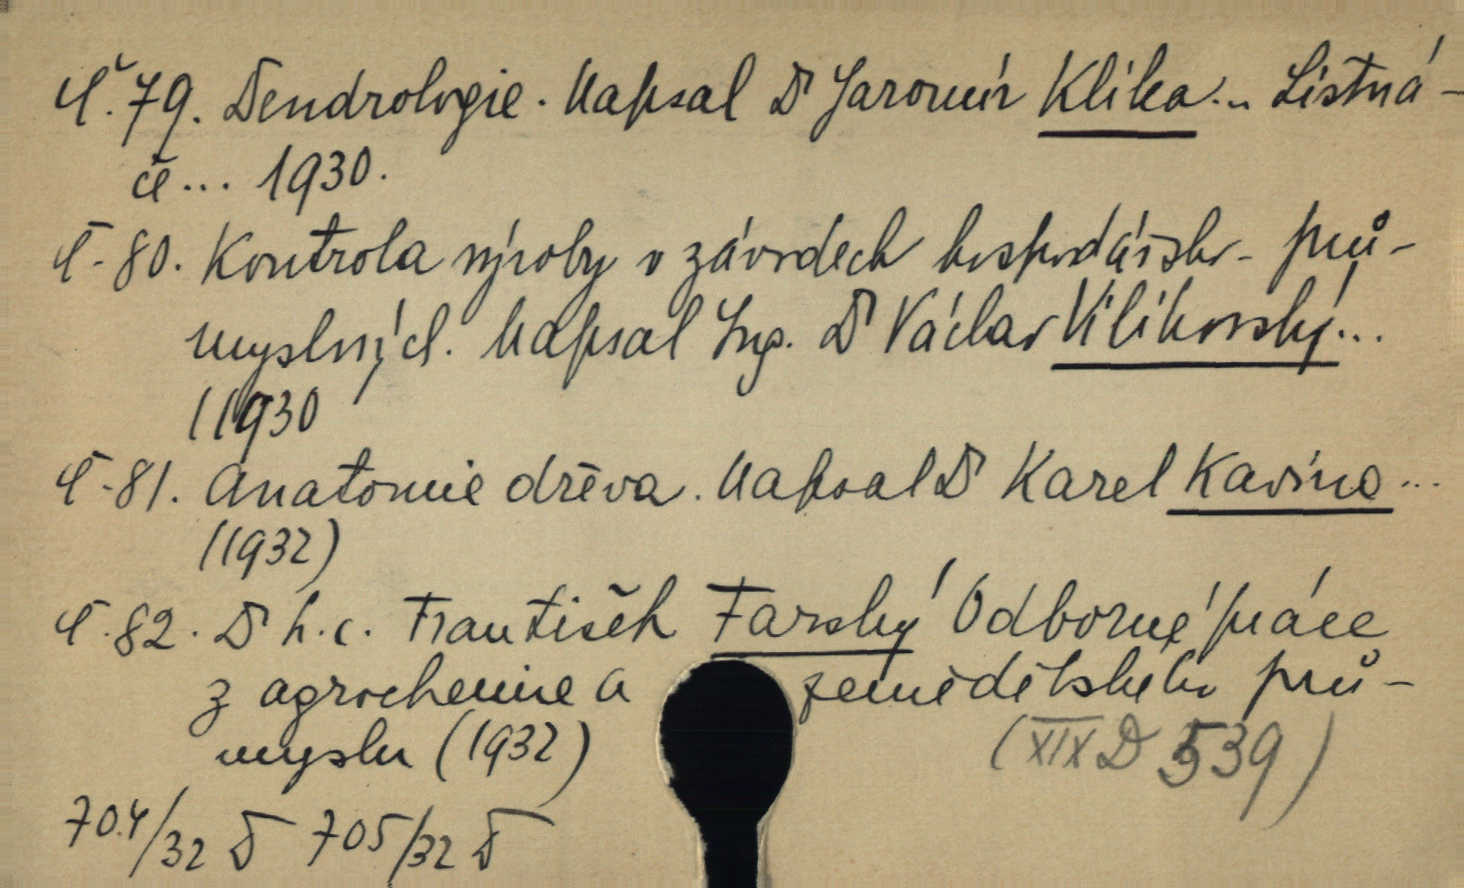 Č. 79. Dendrologie. Napsal Dr Jaromír Klika... Listna-
če... 1930.
Č. 80. Kontrola výroby v závodech hospodářsko-prů-
myslových. Napsal Ing. Dr Václav Vilikovský...
(1930
Č. 81. Anatomie dřeva. Napsal Dr Karel Kavina...
(1932)
Č. 82. Dr h.c. František Farský Odborné práce
z agrochemie a zemědělského prů-
myslu (1932)
(XIX D 539)
704/32 D 705/32 D